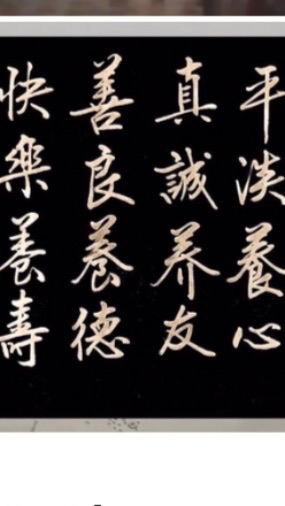 平淡養心
真誠养友
善良養德
快樂養壽